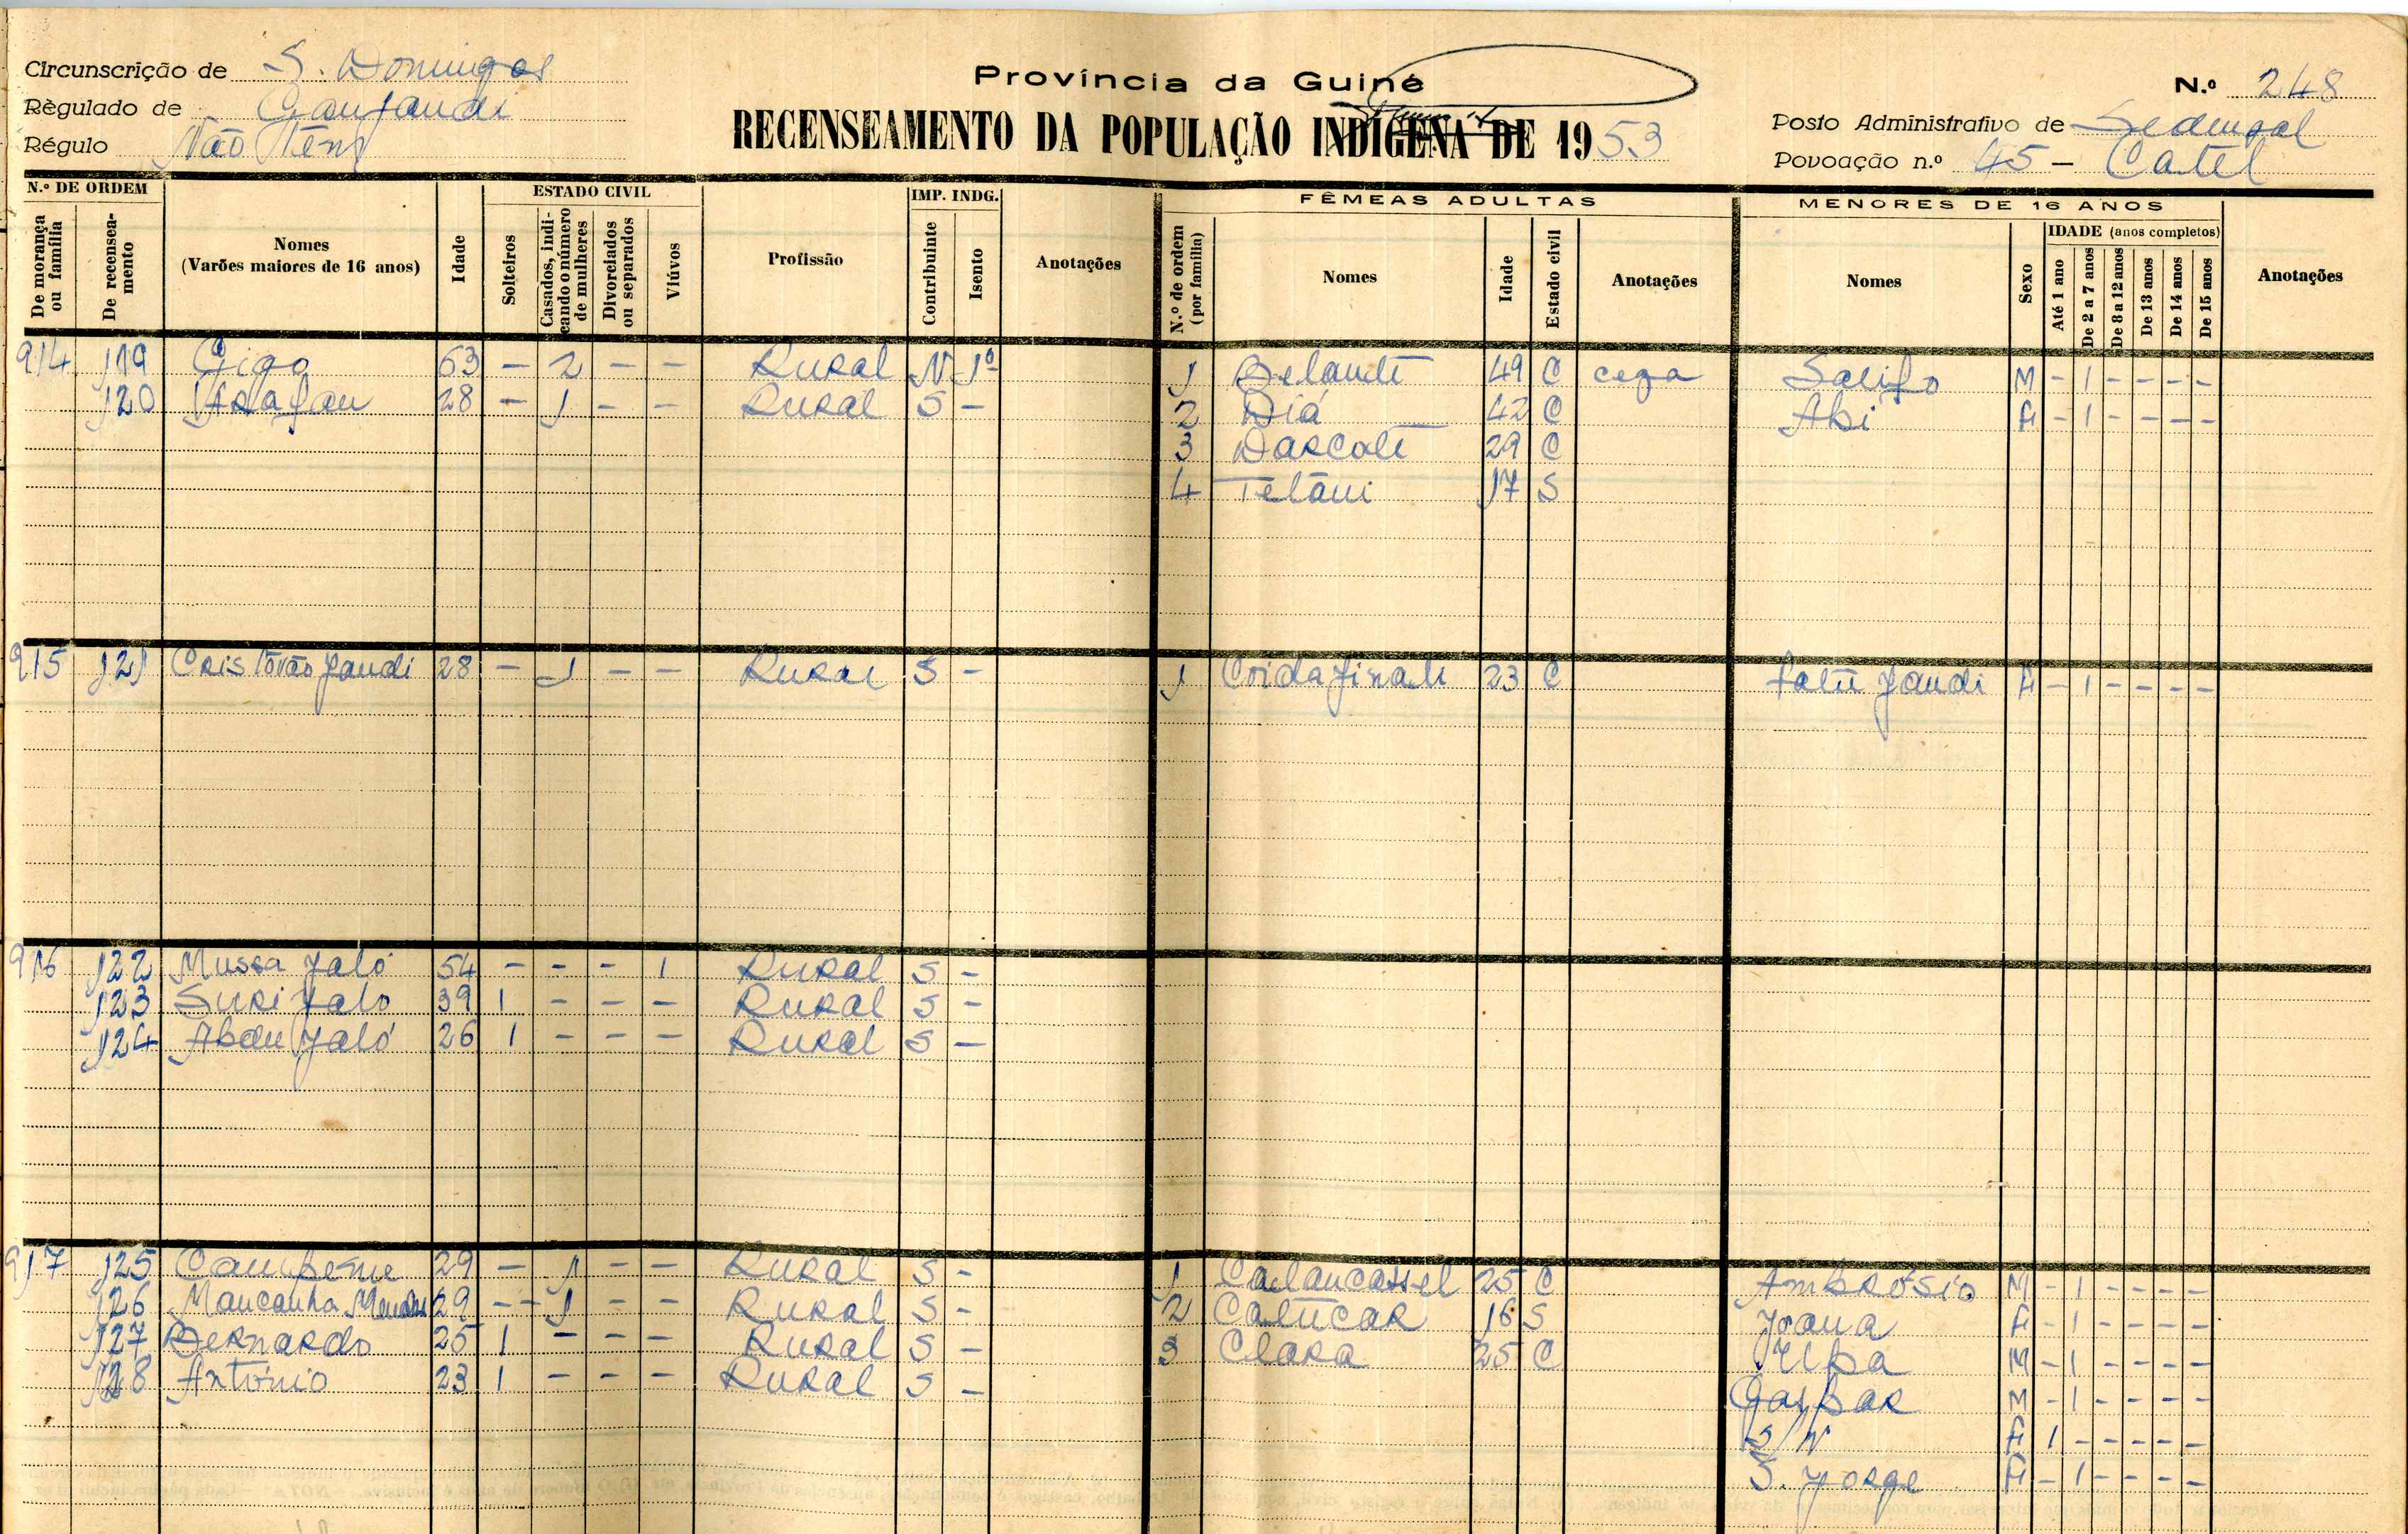 Circunscrição de S. Domingos
Régulado de
Régulo Não Tem
Província da Guiné
RECENSEAMENTO DA POPULAÇÃO INDÍGENA DE 1953
N.º 248
Posto Administrativo de Sedengal
Povoação n.º 45 - Catel
N.º DE ORDEM
De morança ou família
De recenseamento
Nomes
(Varões maiores de 16 anos)
Idade
ESTADO CIVIL
Solteiros
Casados, indicando o número de mulheres
Divorciados ou separados
Viúvos
Profissão
IMP. INDG.
Contribuinte
Isento
Anotações
FÊMEAS ADULTAS
N.º de ordem (por família)
Nomes
Idade
Estado civil
Anotações
MENORES DE 16 ANOS
Nomes
Sexo
IDADE (anos completos)
Até 1 ano
De 2 a 7 anos
De 8 a 12 anos
De 13 anos
De 14 anos
De 15 anos
Anotações
914 119 Gigo 63 - 2 - - Rural N 1º 1 Belanti 49 C cega Salifo M - 1 - - - -
120 28 - 1 - - Rural S - 2 Diá 42 C Abi F - 1 - - - -
3 Dascoli 29 C
4 17 S
915 121 Cristóvão Jandi 28 - 1 - - Rural S - 1 23 C Fatú Jandi F - 1 - - - -
916 122 Mussa Jaló 54 - - - 1 Rural S -
123 Suri Jaló 39 1 - - - Rural S -
124 Abdu Jaló 26 1 - - - Rural S -
917 125 29 - 1 - - Rural S - 1 Calancassel 25 C Ambrósio M - 1 - - - -
126 Mancanha Mendes 29 - - 1 - - Rural S - 2 Catucar 16 S Joana F - 1 - - - -
127 Bernardo 25 1 - - - Rural S - 3 Clara 25 C M - 1 - - - -
128 António 23 1 - - - Rural S - Gaspar M - 1 - - - -
S/N F 1 - - - - -
S. Jorge F - 1 - - - -